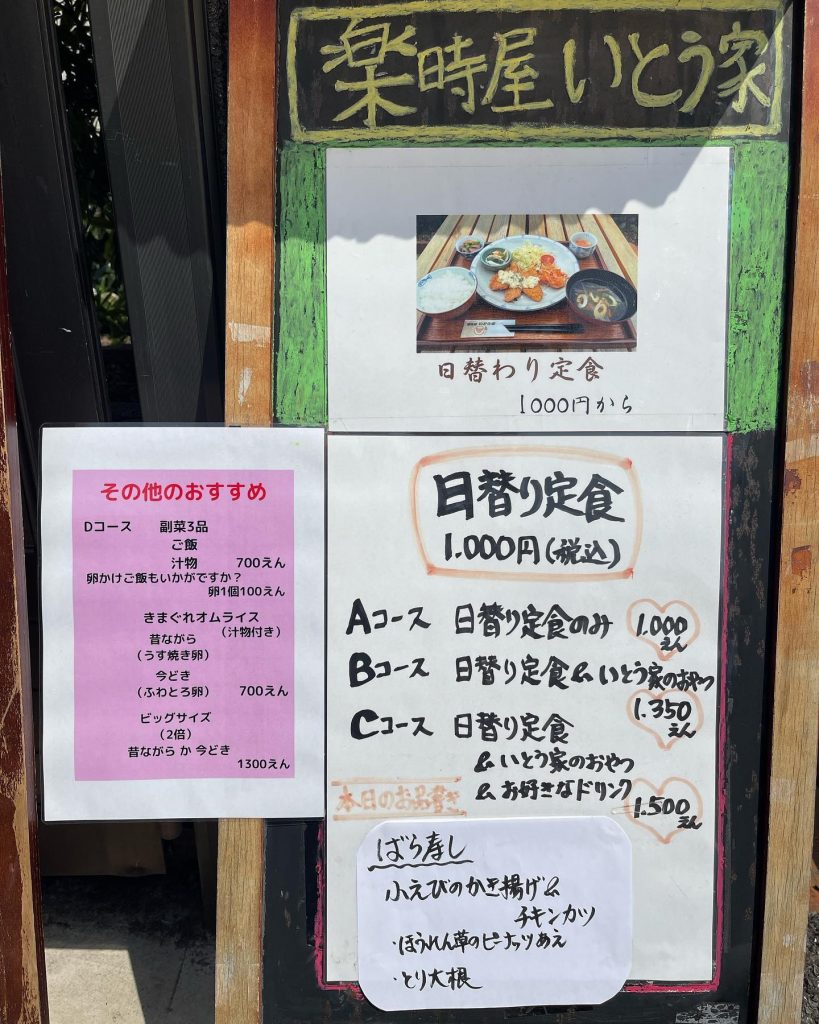 楽時屋 いとう家
日替わり定食
1000円から
その他のおすすめ
Dコース 副菜3品
ご飯
汁物 700えん
卵かけご飯もいかがですか？
卵1個100えん
きまぐれオムライス
（汁物付き）
昔ながら
（うす焼き卵）
今どき
（ふわとろ卵） 700えん
ビッグサイズ
（2倍）
昔ながら か 今どき
1300えん
日替り定食
1.000円（税込）
Aコース 日替り定食のみ 1.000えん
Bコース 日替り定食&いとう家のおやつ
1.350えん
Cコース 日替り定食
&いとう家のおやつ
&お好きなドリンク
1.500えん
本日のお品書き
ばら寿し
小えびのかき揚げ&
チキンカツ
・ほうれん草のピーナッツあえ
・とり大根